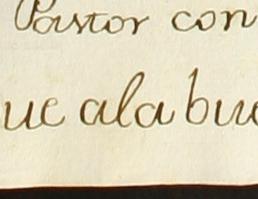 Pastor con
ue ala bue